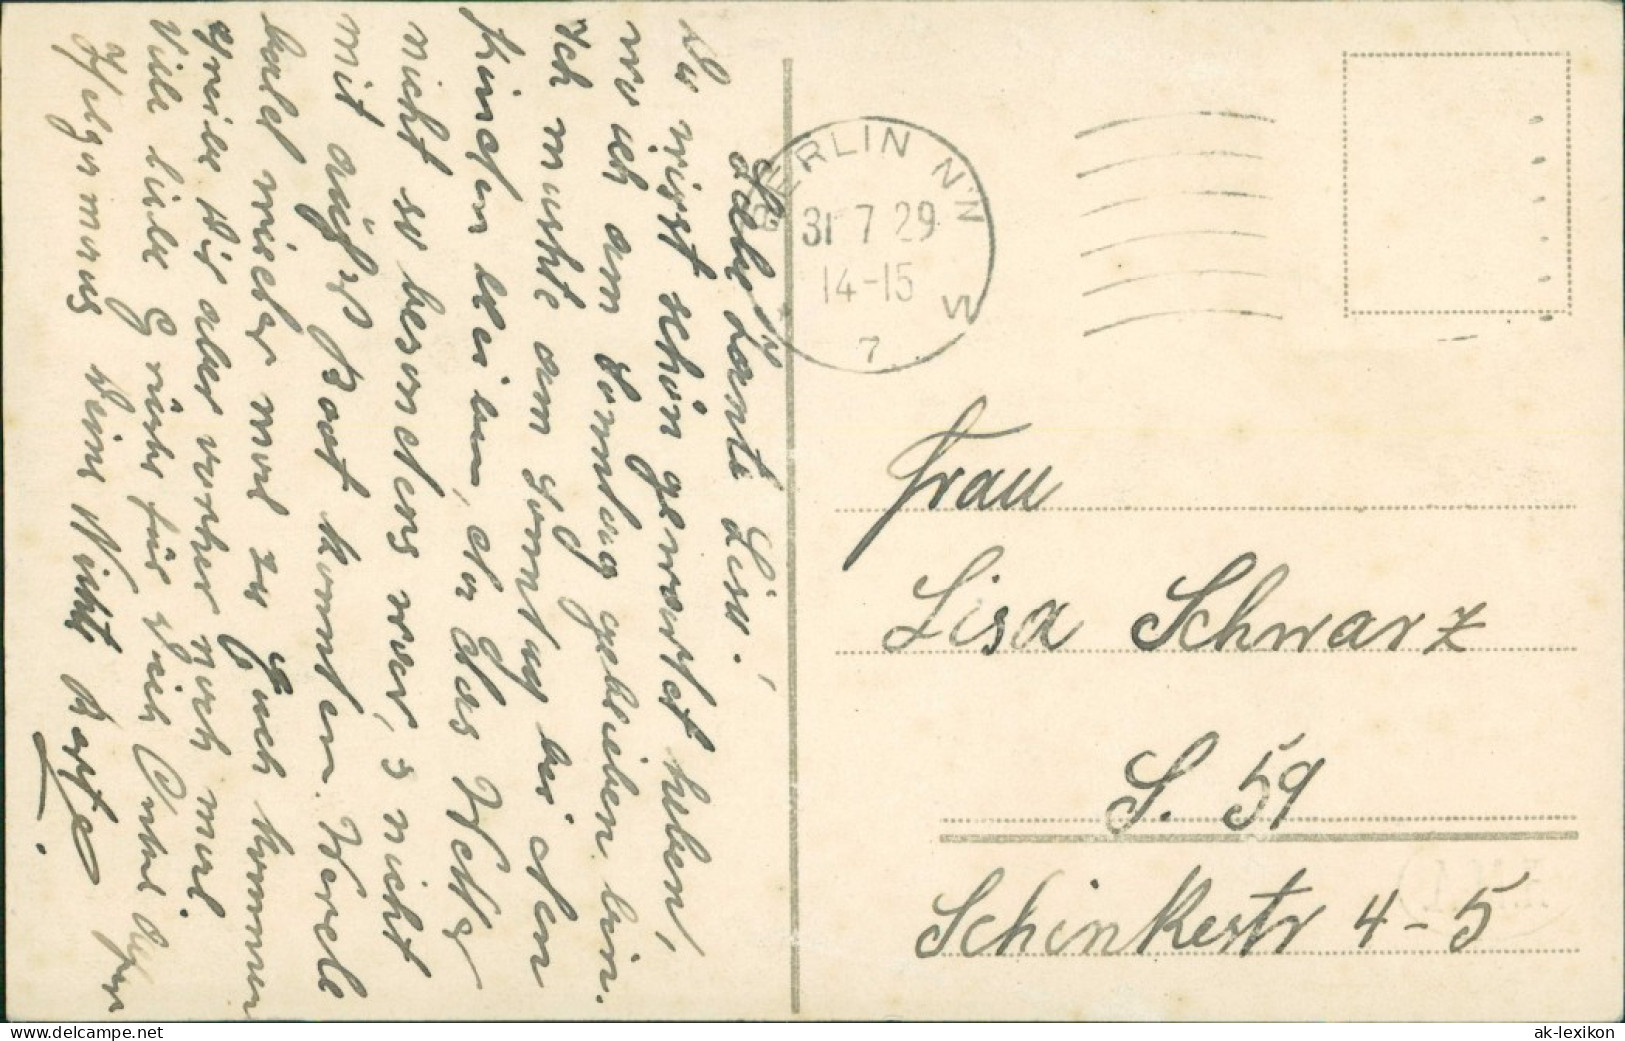 Liebe Tante Lisa!
Du wirst schön gewartet haben,
wo ich am Sonntag geblieben bin.
Ich mußte am Sonntag bei den
Kindern bleiben, da das Wetter
nicht so besonders war, nicht
mit auf's Boot konnten. Werde
bald wieder mal zu Euch kommen
schreibe Dir aber vorher noch mal.
Viele liebe Grüße für Dich Onkel
Deine Nichte
BERLIN N.W.
31 7 29
14-15
7
Frau
Lisa Schwarz
S. 59
Schinkestr 4-5
www.delcampe.net
ak-lexikon